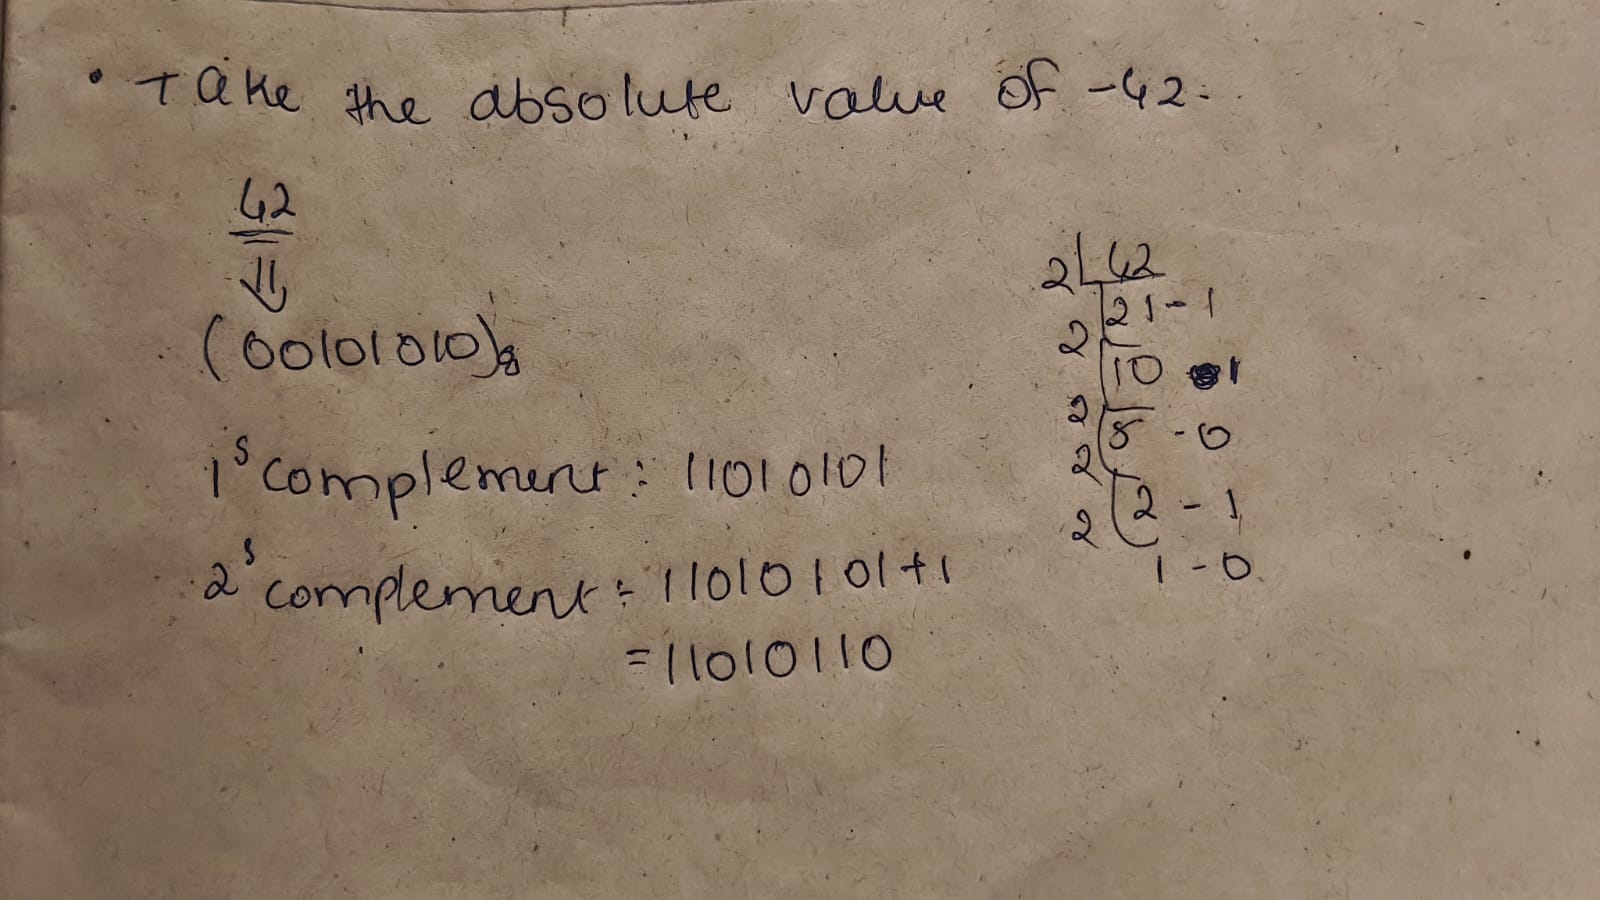 • Take the absolute value of -42.
42
⇓
(00101010)8
1s complement : 11010101
2s complement : 11010101+1
= 11010110
2 42
2 21 - 1
2 10 1
2 5 - 0
2 2 - 1
1 - 0